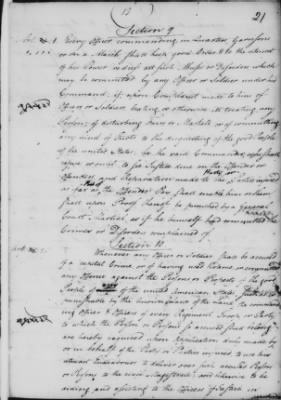 13
21
Section 9
Art. 1 Every Officer commanding in Quarters, Garrisons
or on a March shall keep good Order & to the utmost
of his Power redress all such Abuses or Disorders which
may be committed by any Officer or Soldier under his
Command: if upon Complaint made to him of
Officers or Soldiers beating or otherwise ill treating any
Person; of disturbing Fairs or Markets or of committing
any kind of Riots to the disquieting of the good People
of the united States; he the said Commander who shall
refuse or omit to see Justice done on the Offender or
Offenders and Reparation made to the Party or Parties injured
as far as Part of the Offenders Pay shall enable him or them
shall upon Proof thereof be punished by a General
Court Martial as if he himself had committed the
Crimes or Disorders complained of
Section 10
Whenever any Officer or Soldier shall be accused
of a capital Crime, or of having used Violence, or committed
any Offence against the Persons or Property of the good
People of of the united American States
punishable by the known Laws of the Land, the command-
ing Officer & Officers of every Regiment Troop or Party
to which the Person or Persons so accused shall belong
are hereby required upon Application duly made by
or in behalf of the Party or Parties injured to use his
utmost Endeavours to deliver over such accused Person
or Persons to the civil Magistrate; and likewise to be
aiding and assisting to the Officers of Justice in